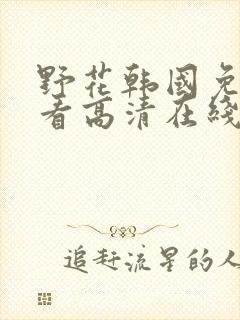 野花韩國免
看高清在綫
追赶流星的人